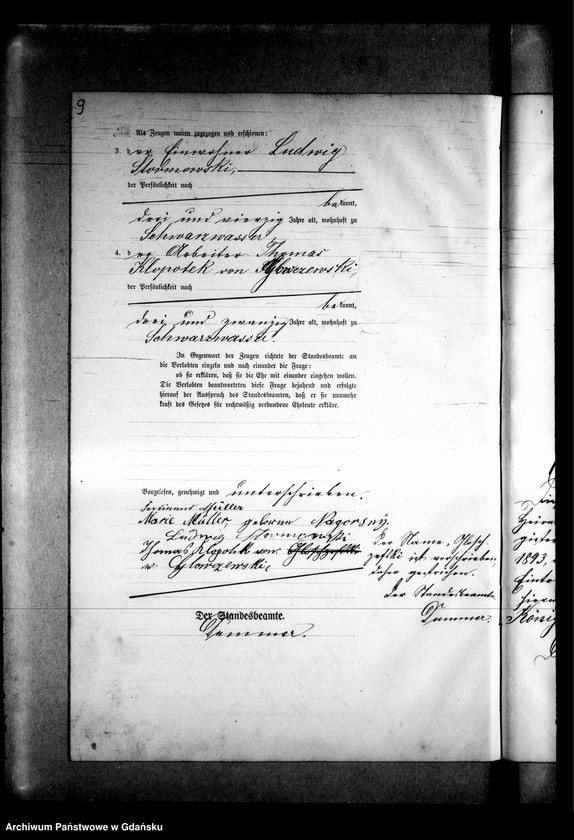 9
Als Zeugen waren zugezogen und erschienen:
3. der Einwohner Ludwig
Stormowski,
der Persönlichkeit nach
bekannt,
drei und vierzig Jahre alt, wohnhaft zu
Schwarzwasser
4. der Arbeiter Thomas
Klopotek von Glowczewski,
der Persönlichkeit nach
bekannt,
drei und zwanzig Jahre alt, wohnhaft zu
Schwarzwasser.
In Gegenwart der Zeugen richtete der Standesbeamte an
die Verlobten einzeln und nach einander die Frage:
ob sie erklären, daß sie die Ehe mit einander eingehen wollen.
Die Verlobten beantworteten diese Frage bejahend und erfolgte
hierauf der Ausspruch des Standesbeamten, daß er sie nunmehr
kraft des Gesetzes für rechtmäßig verbundene Eheleute erkläre.
Vorgelesen, genehmigt und unterschrieben.
Ferdinand Müller
Marie Müller, geborene Nagorsny.
Ludwig
Thomas Klopotek von
v. Glowczewski,
Der Name
ist verschrieben,
daher gestrichen.
Der Standesbeamte
Dammer.
Der Standesbeamte.
Dammer.
1893,
König
Archiwum Państwowe w Gdańsku